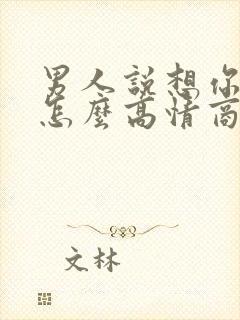 男人說想你
怎麼高情商
文林